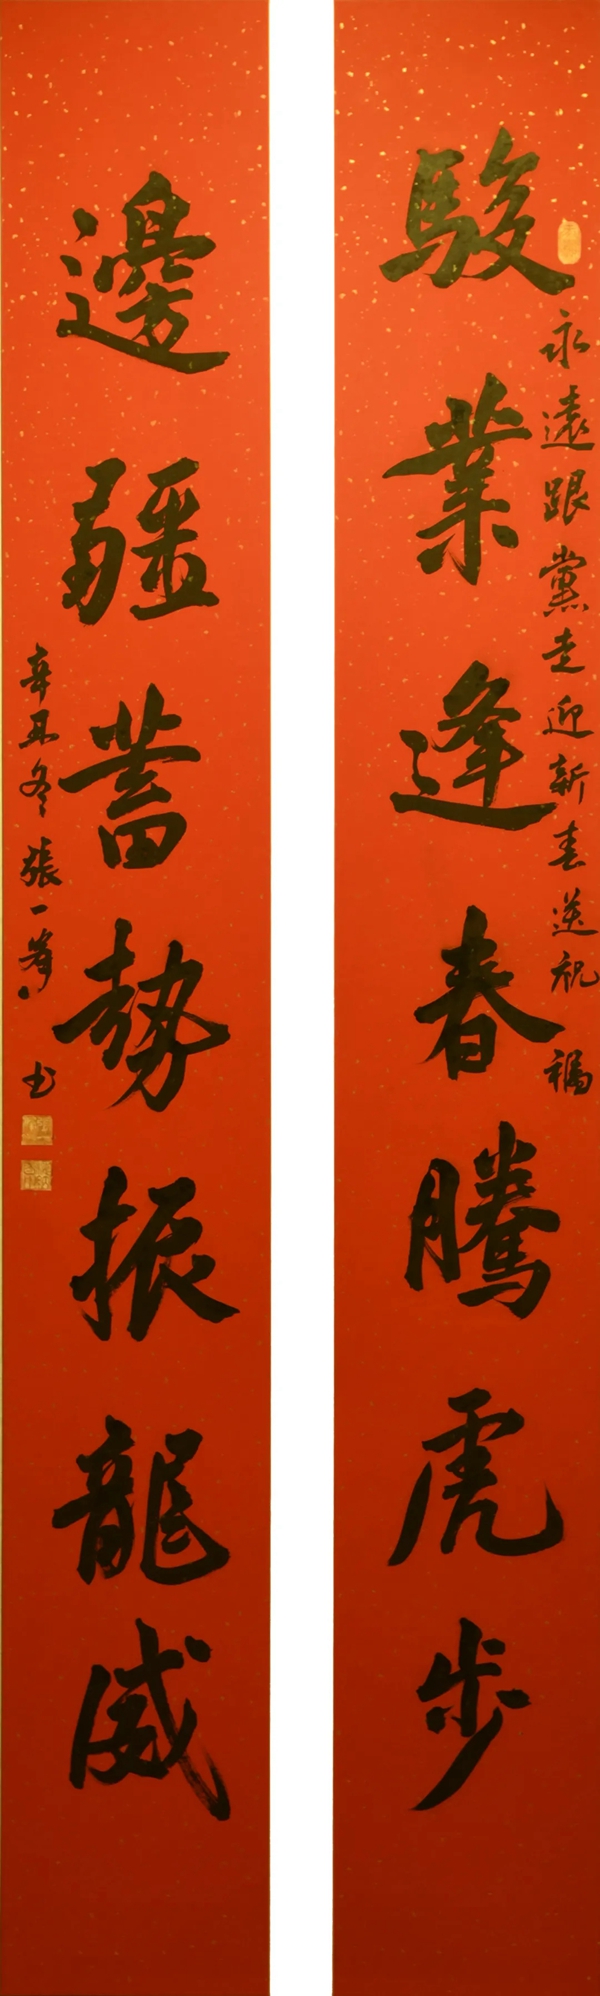 駿業逢春騰虎步
永遠跟黨走迎新春送祝福
邊疆蓄勢振龍威
辛丑冬張一峯书